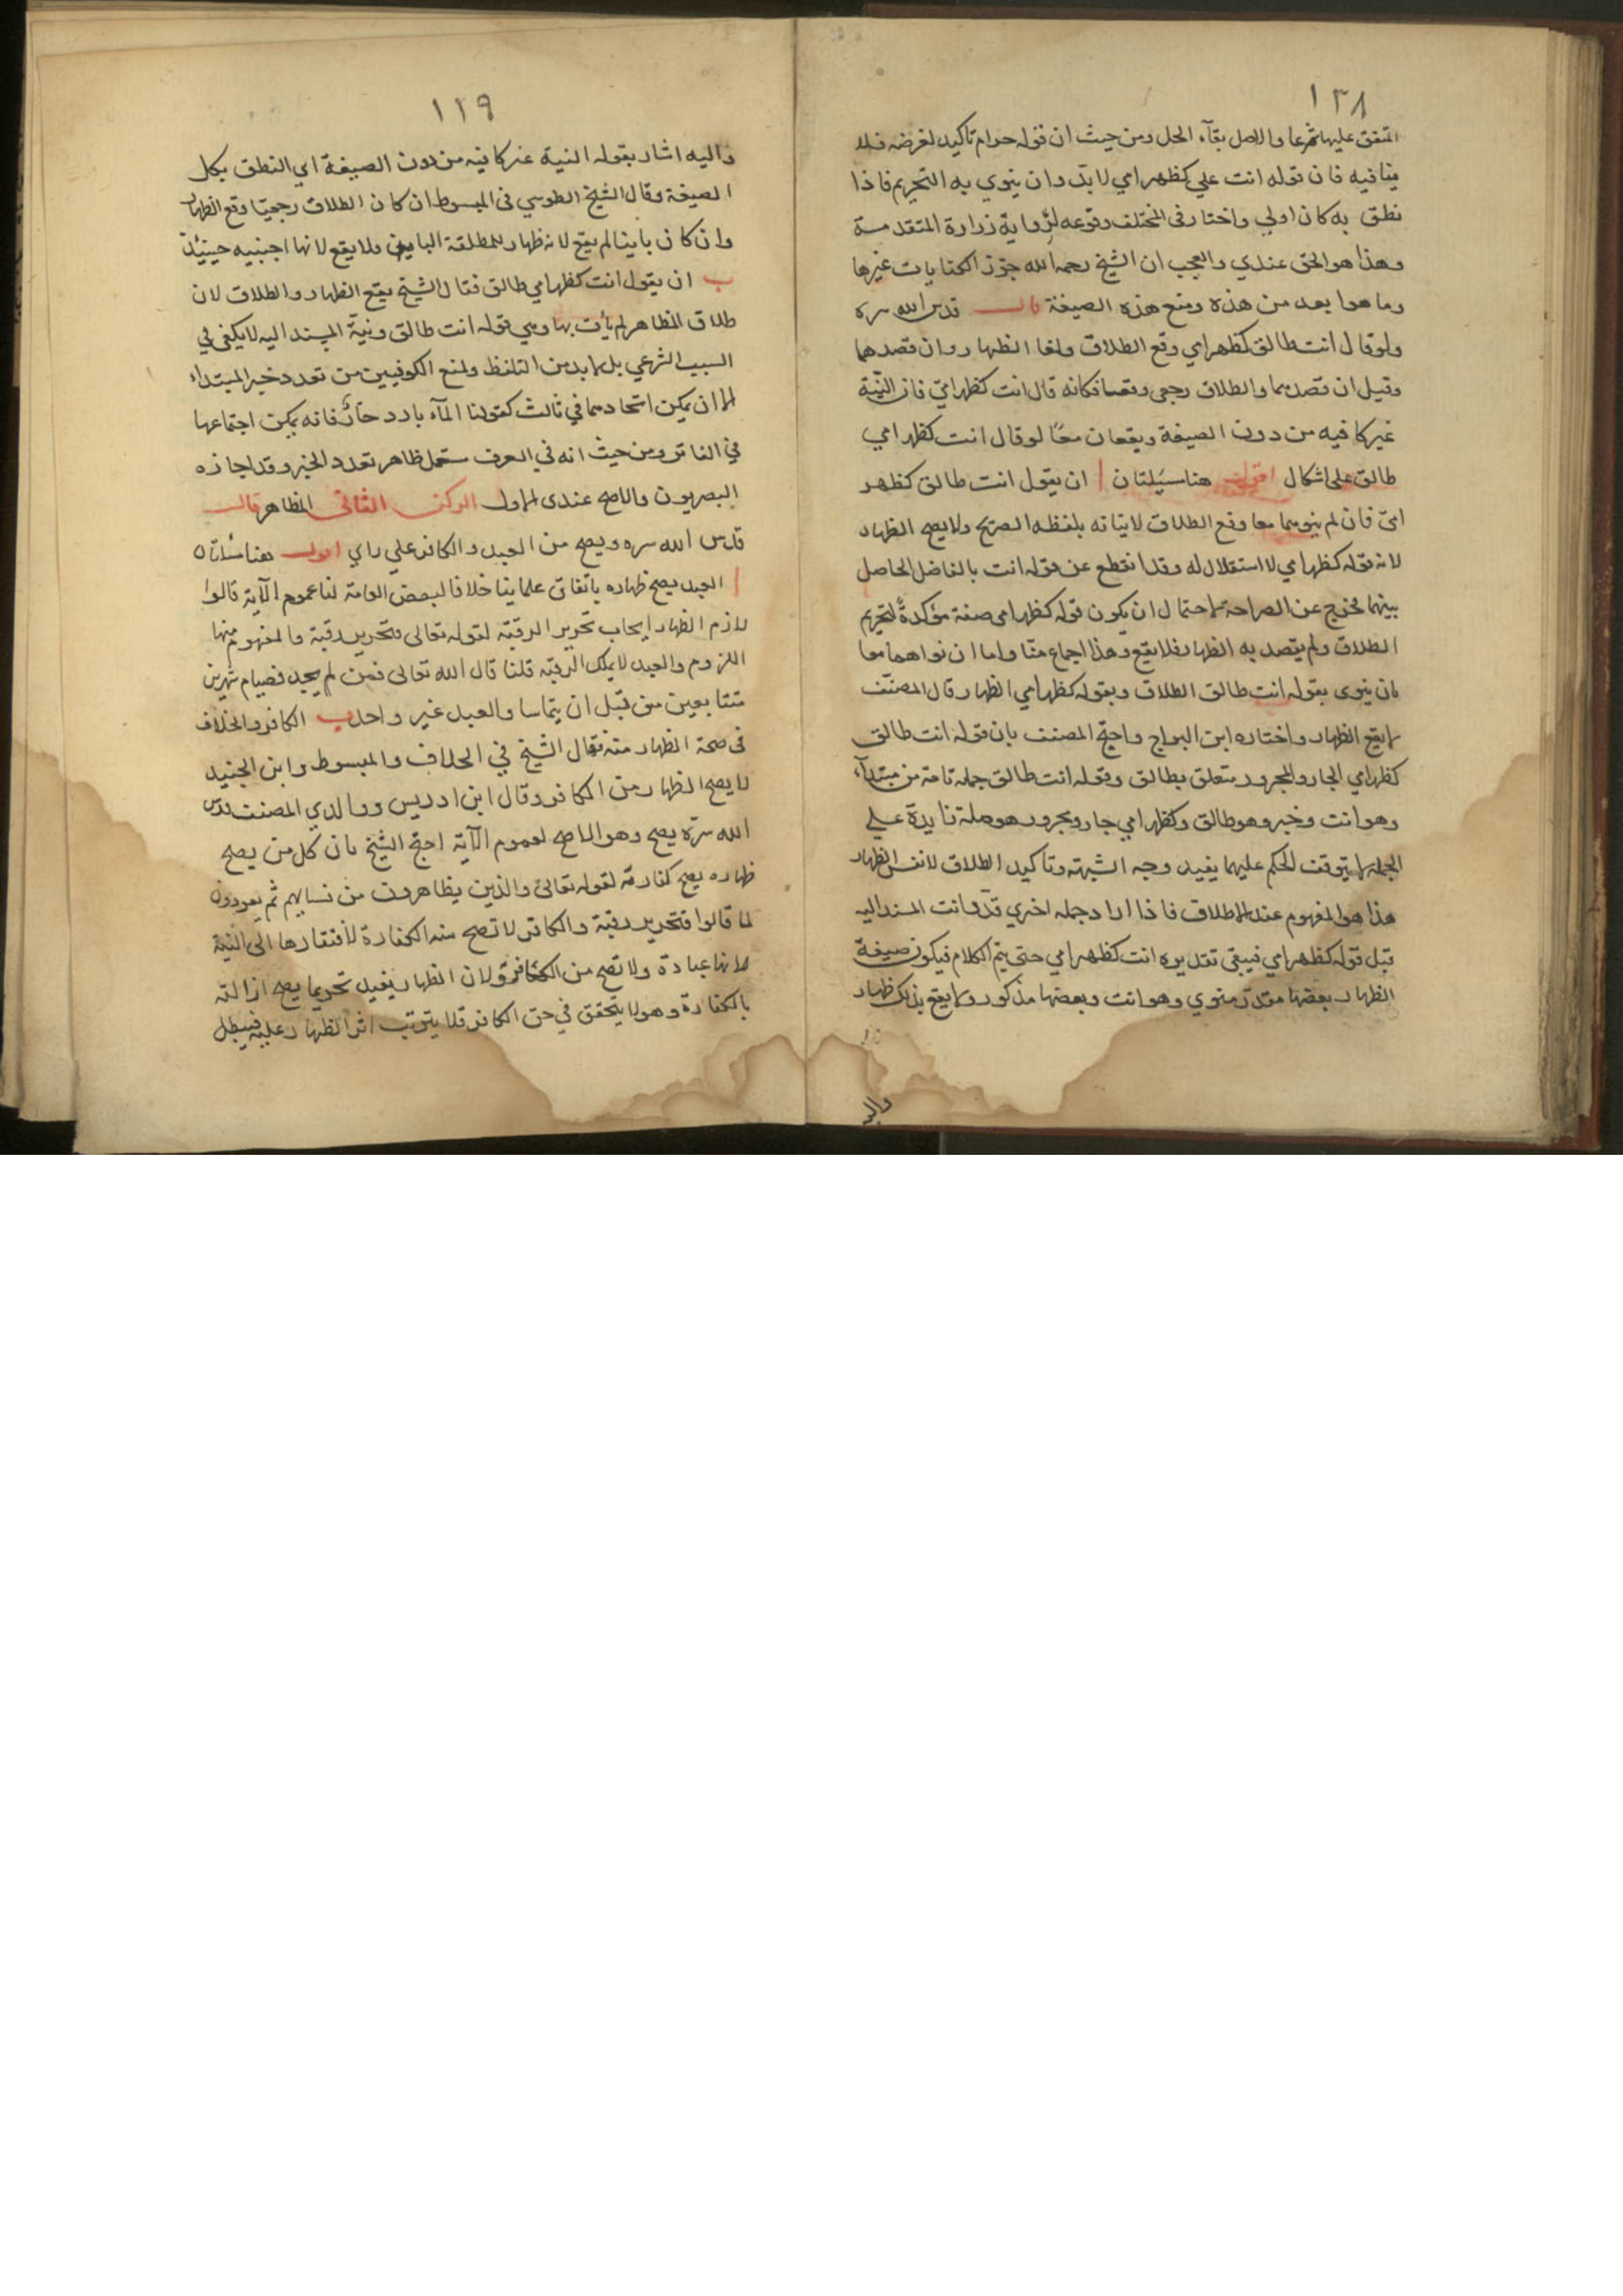 ١٢٨
المتفق عليها شرعا والاصل بقآء الحل ومن حيث ان قوله حرام تاكيد لغرضه فلا
ينافيه فان قوله انت علي كظهر امي لا بد وان ينوي به التحريم فاذا
نطق به كان اولي واختار في المختلف وقوعه لرواية زرارة المتقدمة
وهذا هو الحق عندي والعجب ان الشيخ رحمه الله جوز الكنايات غيرها
وما هو ابعد من هذه ومنع هذه الصيغة قال قدس الله سره
ولو قال انت طالق كظهر امي وقع الطلاق ولغا الظهار وان قصدهما
وقيل ان قصدهما والطلاق رجعي وقعا فكانه قال انت كظهر امي فان النية
غير كافيه من دون الصيغة ويقعان معا لو قال انت كظهر امي
طالق علي اشكال اقول هنا مسئلتان ا ان يقول انت طالق كظهر
امي فان لم ينوهما معا وقع الطلاق لاتيانه بلفظه الصريح ولا يصح الظهار
لانه قوله كظهر امي لا استقلال له وقد انقطع عن قوله انت بالفاضل الحاصل
بينهما فخرج عن الصراحة لاحتمال ان يكون قوله كظهر امي صفة مؤكدة لتحريم
الطلاق ولم يقصد به الظهار فلا يقع وهذا اجماع منا واما ان نواهما معا
بان ينوي بقوله انت طالق الطلاق وبقوله كظهر امي الظهار قال المصنف
لا يقع الظهار واختاره ابن البراج واحتج المصنف بان قوله انت طالق
كظهر امي الجار والمجرور متعلق بطالق وقوله انت طالق جملة تامة من مبتدآء
وهو انت وخبر وهو طالق وكظهر امي جار ومجرور هو صلة زايدة علي
الجملة لا يتوقف الحكم عليهما يفيد وجه الشبه وتاكيد الطلاق لا نفس الظهار
هذا هو المفهوم عند الاطلاق فاذا اراد جملة اخري قدر انت المسند اليه
قبل قوله كظهر امي فيبقي تقديره انت كظهر امي حتى يتم الكلام فيكون صيغة
الظهار بعضها مقدر منوي وهو انت وبعضها مذكور ولا يقع بذلك ظهار
واليه
١٢٩
واليه اشار بقوله النية غير كافيه من دون الصيغة اي النطق بكل
الصيغة وقال الشيخ الطوسي في المبسوط ان كان الطلاق رجعيا وقع الظهار
وان كان باينا لم يقع لانه ظهار للمطلقة الباين ولا يقع لانها اجنبيه حينيذ
ب ان يقول انت كظهر امي طالق فقال الشيخ يقع الظهار والطلاق لان
طلاق المظاهر لم يأت بها وهي قوله انت طالق ونية المسند اليه لا يكفي في
السبب الشرعي بل لا بد من التلفظ ولمنع الكوفيين من تعدد خبر المبتداء
الا ان يمكن اتحادهما في ثالث كقولنا المآء بارد حار فانه يمكن اجتماعها
في الفاتر ومن حيث انه في العرف ستعمل ظاهر تعدد الخبر وقد اجازه
البصريون والاصح عندي الاول الركن الثاني المظاهر قال
قدس الله سره ويصح من العبد والكافر علي راي اقول هنا مسئلتان
ا العبد يصح ظهاره باتفاق علماينا خلافا لبعض العامة لنا عموم الآية قالوا
لازم الظهار ايجاب تحرير الرقبة لقوله تعالي فتحرير رقبة والمفهوم منها
اللزوم والعبد لا يملك الرقبة قلنا قال الله تعالي فمن لم يجد فصيام شهرين
متتابعين من قبل ان يتماسا والعبد غير واجد ب الكافر والخلاف
في صحة الظهار منه فقال الشيخ في الخلاف والمبسوط وابن الجنيد
لا يصح الظهار من الكافر وقال ابن ادريس ووالدي المصنف قدس
الله سره يصح وهو الاصح لعموم الآية احتج الشيخ بان كل من يصح
ظهاره يصح كفارته لقوله تعالي والذين يظاهرون من نسايهم ثم يعودون
لما قالوا فتحرير رقبة والكافر لا تصح منه الكفارة لافتقارها الى النية
لانها عبادة ولا تصح من الكافر ولان الظهار يفيد تحريما يصح ازالته
بالكفارة وهو لا يتحقق في حق الكافر فلا يترتب اثر الظهار عليه فيبطل